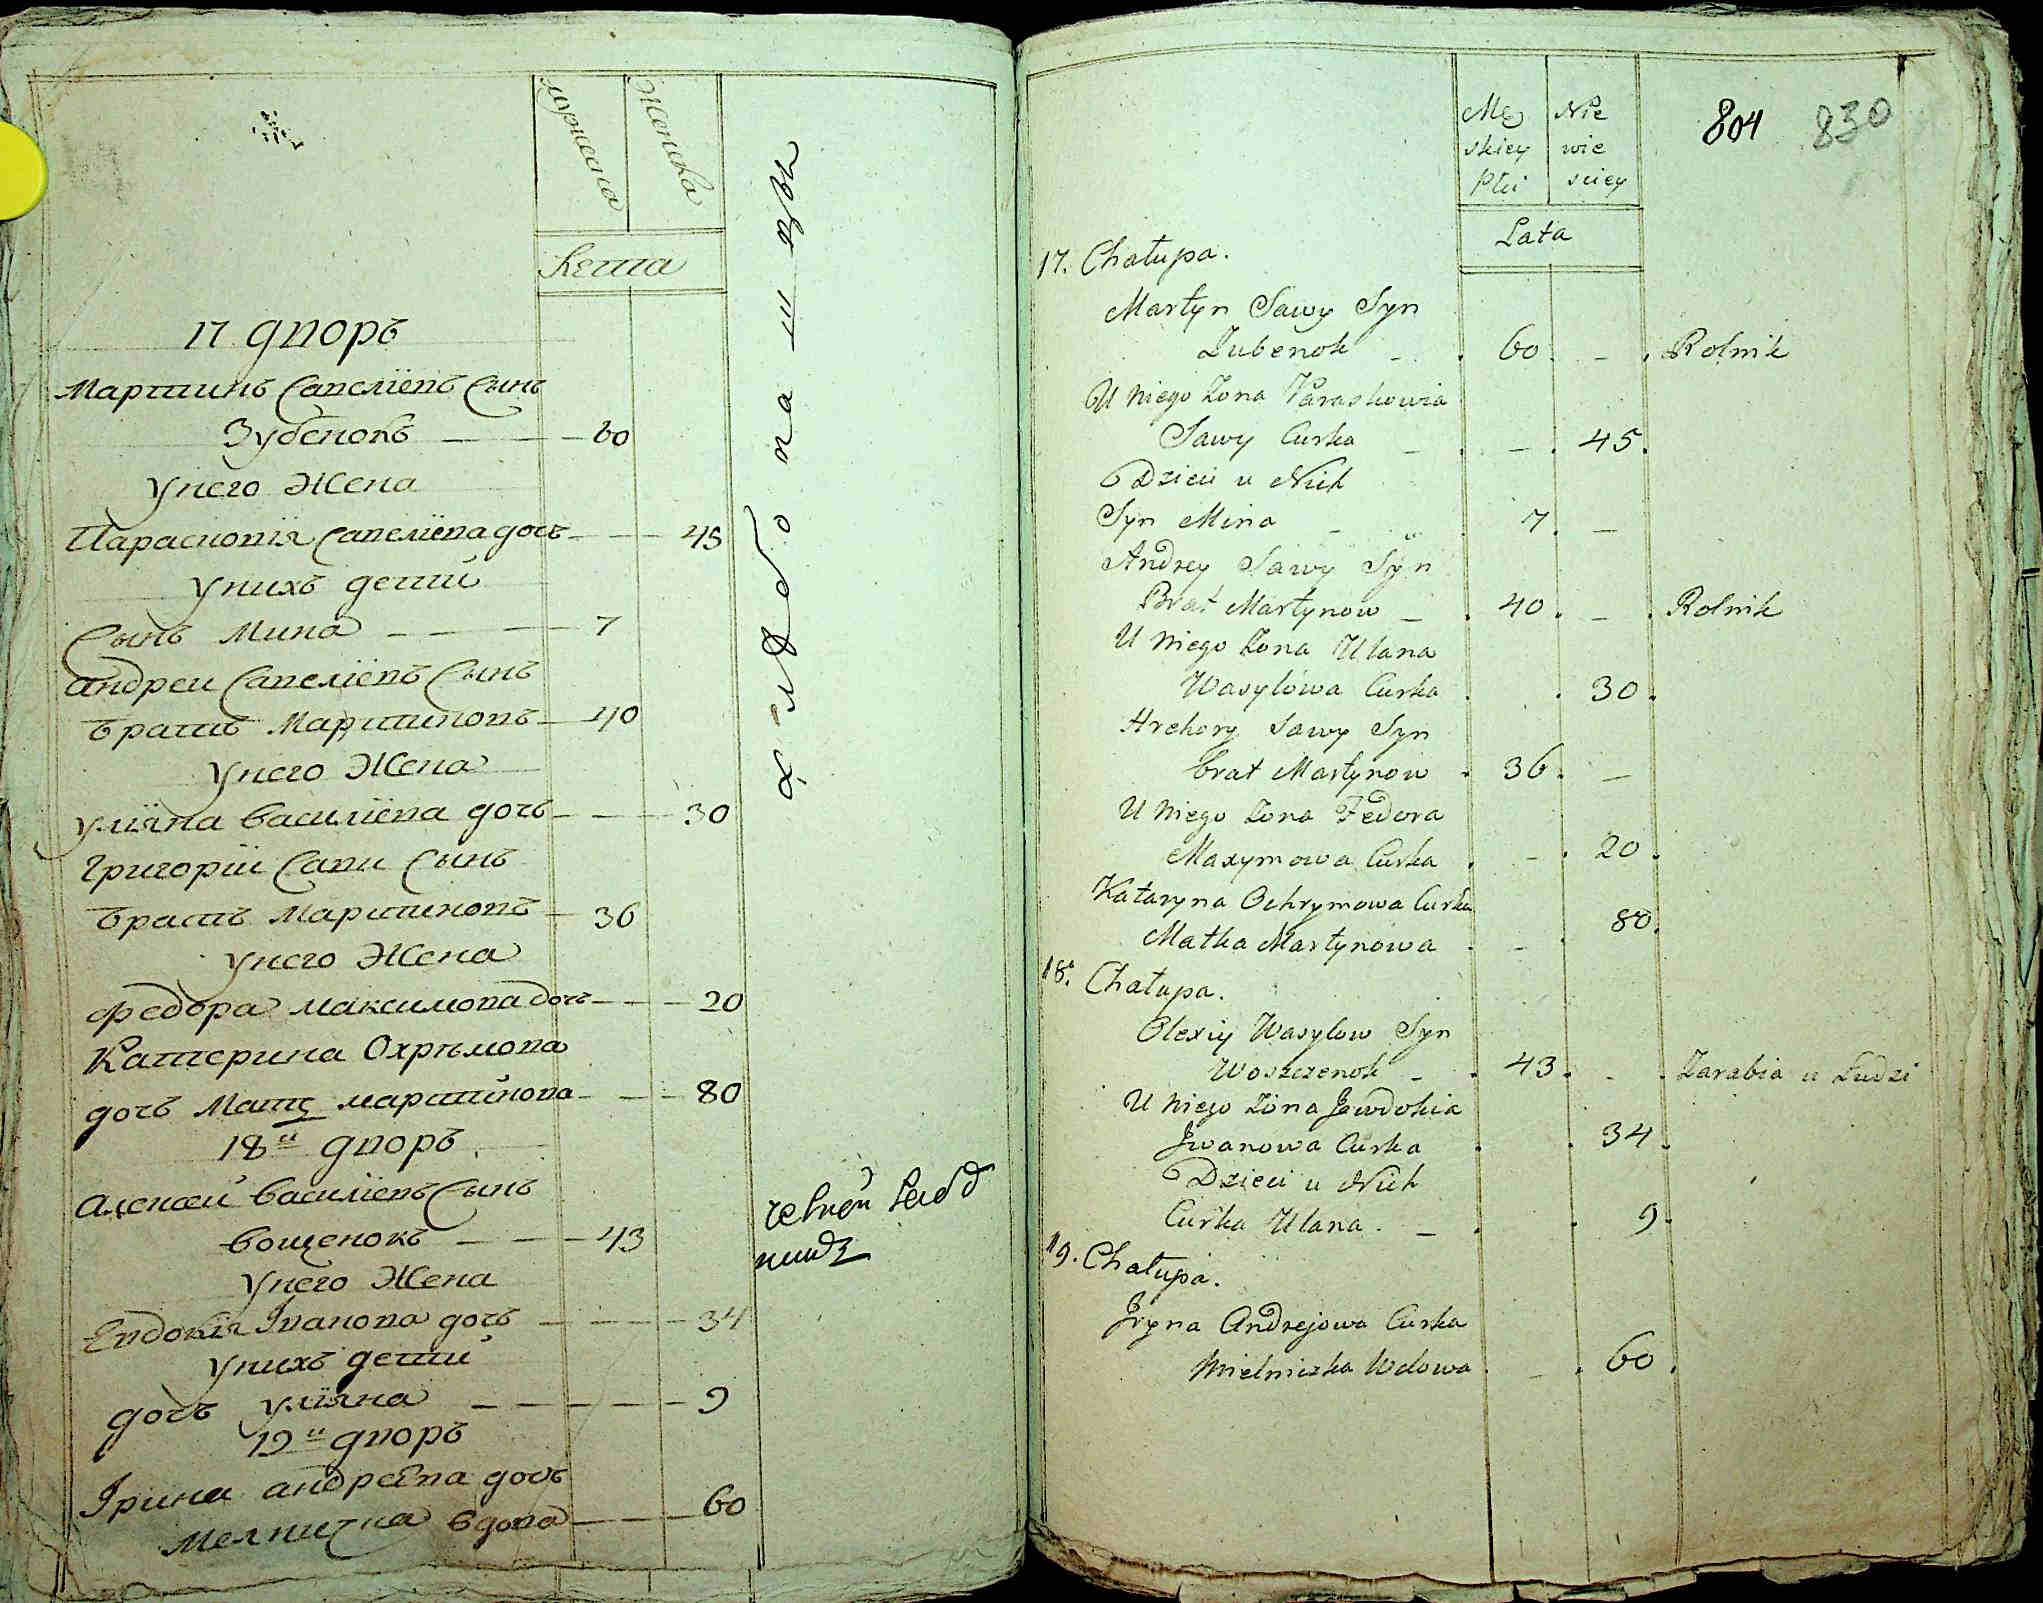 мужеска
женска
Лета
17 дворъ
Мартинъ Савелїевъ Сынъ
Зубенокъ — — 60
У него Жена
Парасковїя Савелїева дочь — — 45
У нихъ детей
Сынъ Мина — — 7
андрей Савелїевъ Сынъ
братъ Мартиновъ — 40
У него Жена
Улїяна василїева дочь — — 30
Григорїй Сави Сынъ
братъ Мартиновъ — 36
У него Жена
Федора максимова дочь — — 20
Катерина Охримова
дочь Мать мартинова — — 80
18й дворъ
Алексей василїевъ Сынъ
вощенокъ — — 43
У него Жена
Евдокїя Іванова дочь — — — 34
У нихъ детей
дочь Улїяна — — — 9
19й дворъ
Ірина андреева дочь
Мелничка вдова — — 60
хлебопашцы
804 830
Mę
skiey
Płci
Nie
wie
sciey
Lata
17. Chałupa.
Martyn Sawy Syn
Zubenok – 60 – Rolnik
U niego Zona Paraskowia
Sawy Curka – – 45.
Dzieci u Nich
Syn Mina – 7. –
Andrey Sawy Syn
Brat Martynow – 40. – Rolnik
U niego Zona Ulana
Wasylowa Curka . . 30.
Hrehory Sawy Syn
brat Martynow . 36. –
U niego Zona Fedora
Maxymowa Curka . – . 20.
Kataryna Ochrymowa Curka
Matka Martynowa . – . 80.
18. Chałupa.
Olexiy Wasylow Syn
Woszczenok – . 43. – . Zarabia u Ludzi
U niego Zona Jewdokia
Jwanowa Curka . . 34.
Dzieci u Nich
Curka Ulana. – . . 9.
19. Chałupa.
Jryna Andrejowa Curka
Mielniczka Wdowa . – . 60.